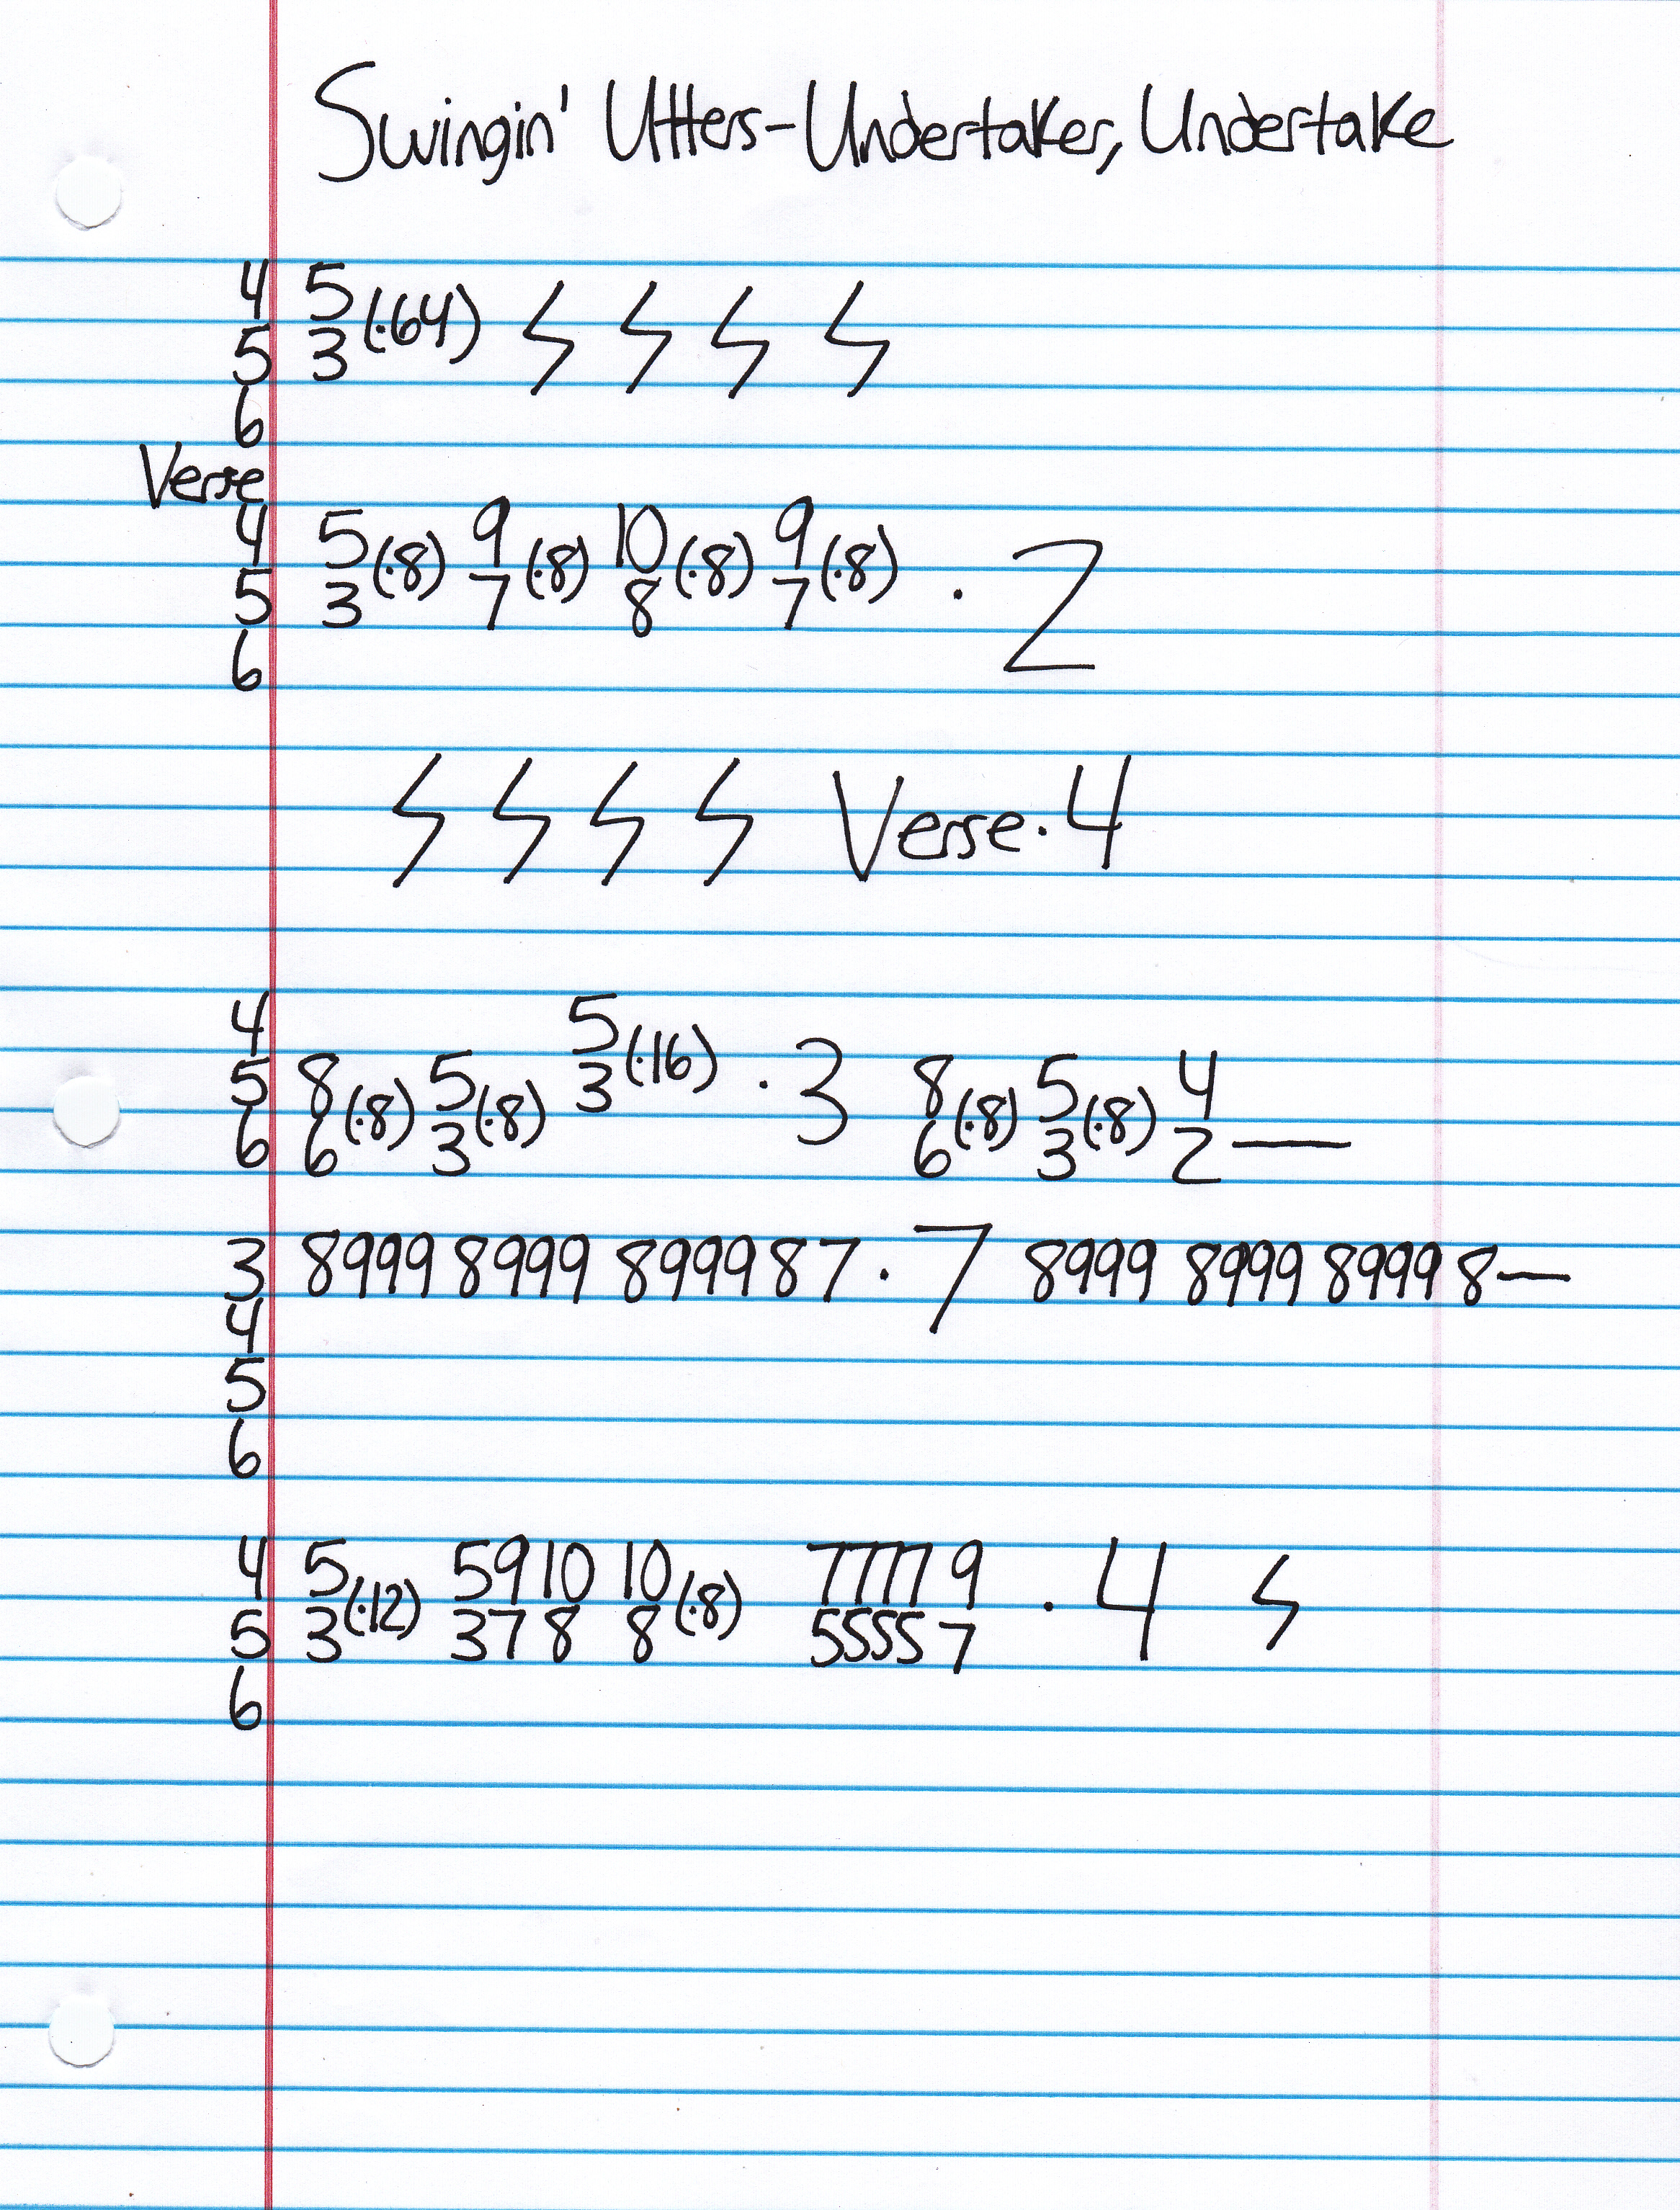 Swingin' Utters-Undertaker, Undertake
4 5
(·64) ϟ ϟ ϟ ϟ
5 3
6
Verse
4 5 9 10 9
(·8) (·8) (·8) (·8) · 2
5 3 7 8 7
6
ϟ ϟ ϟ ϟ Verse·4
4 5
(·16) · 3
5 8 5 3 8 5 4
(·8) (·8) (·8) (·8)
6 6 3 6 3 2—
3 8999 8999 899987·7 8999 8999 8999 8—
4
5
6
4 5 5 9 10 10 7777 9
(·12) (·8) · 4 ϟ
5 3 3 7 8 8 5555 7
6